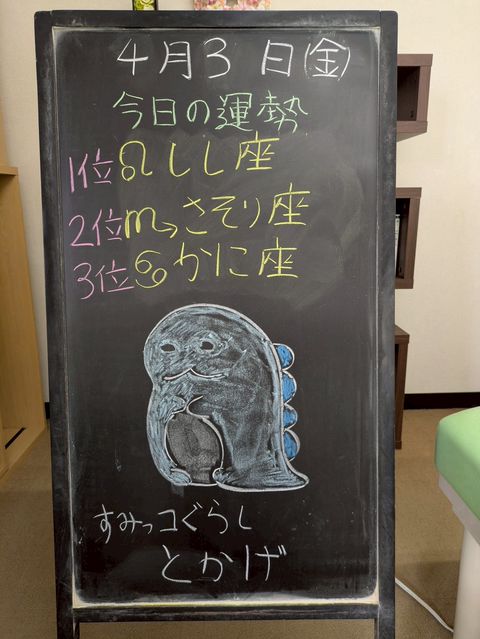 4月3日(金)
今日の運勢
1位♌しし座
2位♏さそり座
3位♋かに座
すみっコぐらし
とかげ